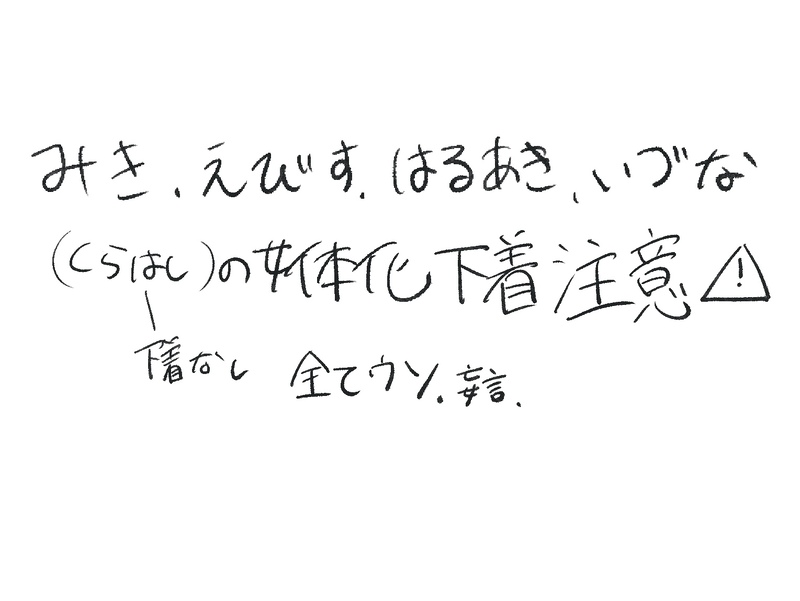 みき、えびす、はるあき、いづな
(くらはし)の女体化下着注意⚠
下着なし 全てウソ。妄言。